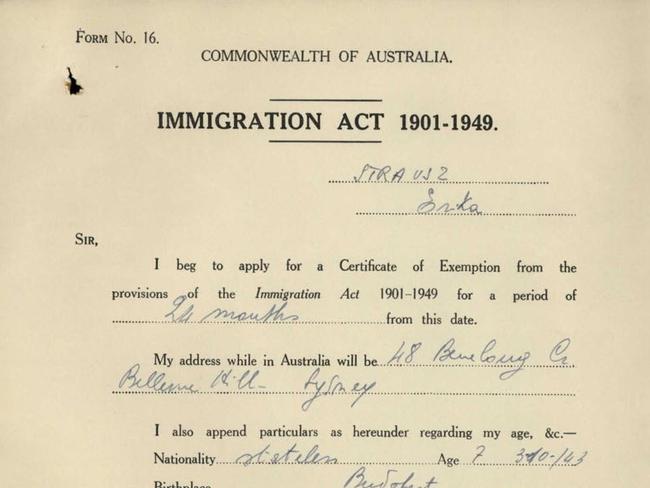 FORM NO. 16.
COMMONWEALTH OF AUSTRALIA.
IMMIGRATION ACT 1901-1949.
STRAUSZ
Erika
SIR,
I beg to apply for a Certificate of Exemption from the
provisions of the Immigration Act 1901-1949 for a period of
24 months from this date.
My address while in Australia will be 48 Benelong Cr
Bellevue Hill - Sydney
I also append particulars as hereunder regarding my age, &c.—
Nationality stateless Age 7
Birthplace Budapest